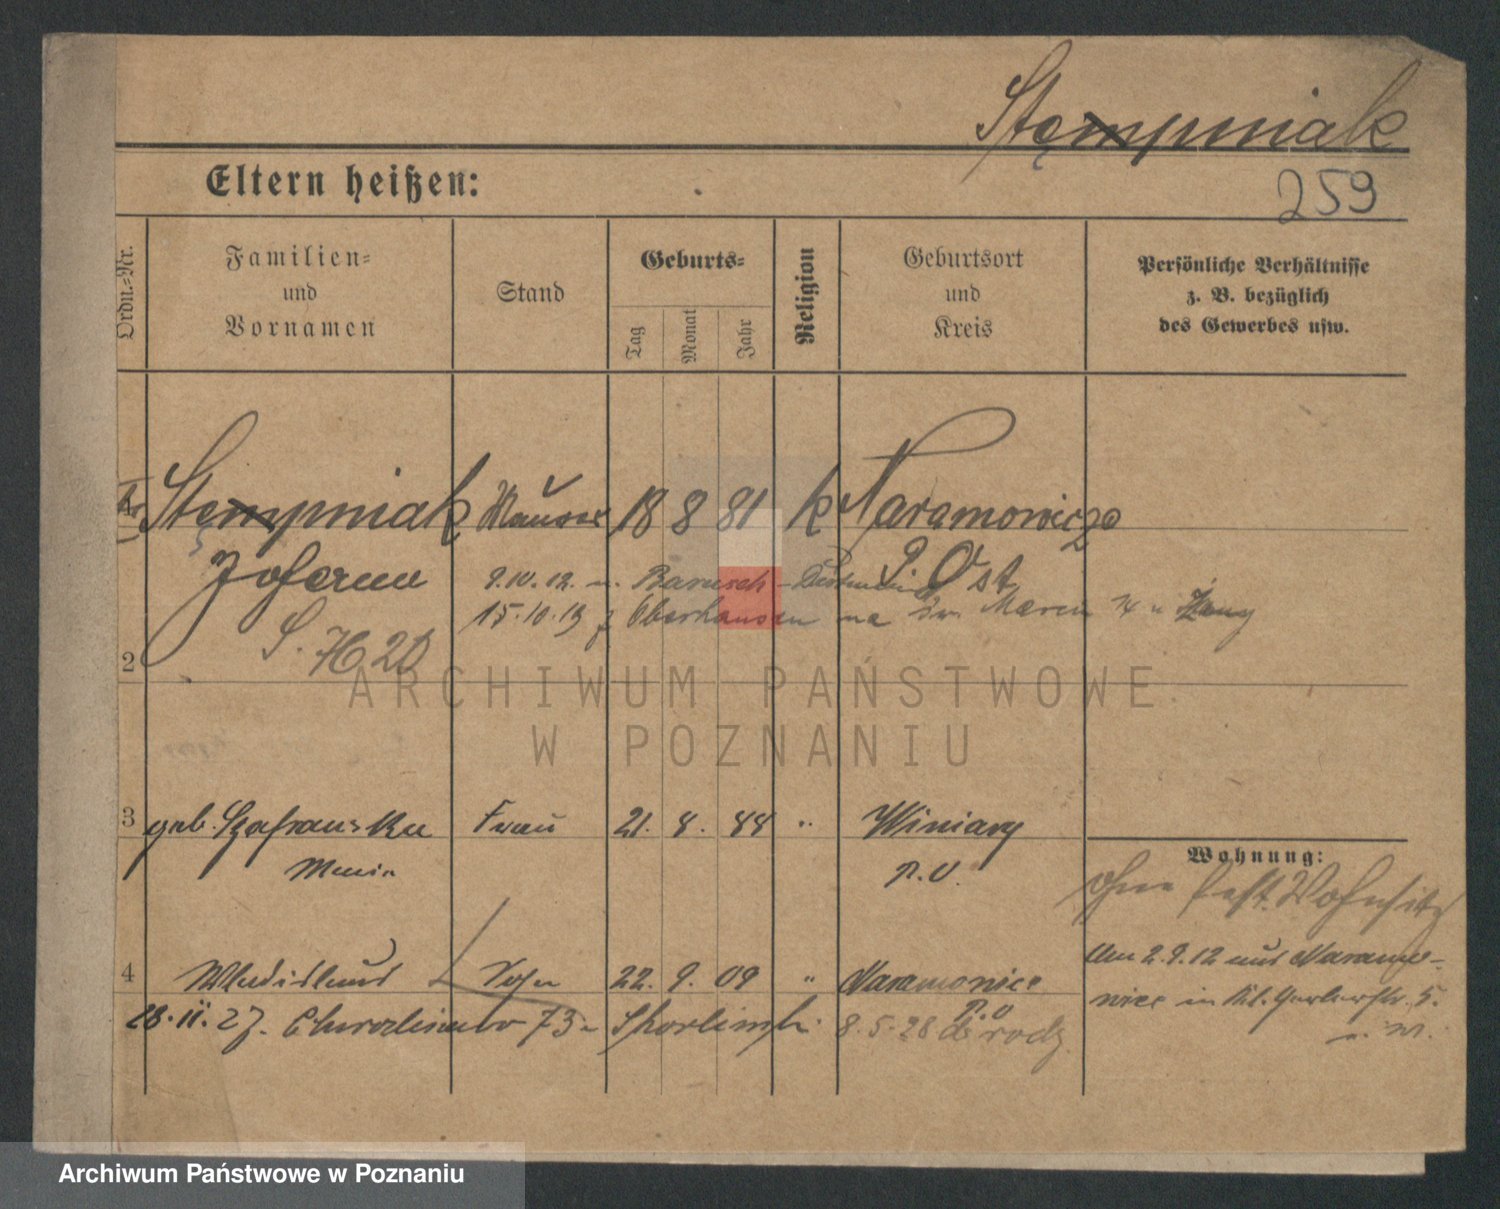 Stempniak
259
Eltern heißen:
Ordn.-Nr.
Familien-
und
Vornamen
Stand
Geburts-
Tag
Monat
Jahr
Religion
Geburtsort
und
Kreis
Persönliche Verhältnisse
z. B. bezüglich
des Gewerbes usw.
Stempniak Maurer 18 8 81 k Naramowice
P. Ost
9.10.12. n. Barusch-
15.10.19 z Oberhausen na Św. Marcin
2
S. H 20
ARCHIWUM PAŃSTWOWE
W POZNANIU
3 geb. Szafranska Frau 21. 8. 88 " Winiary
Maria P.O.
Wohnung:
ohne fest. Wohnsitz
4 Wladislaus Sohn 22. 9. 09 " Naramowice
P.O
Am 2.9.12 aus Naramo-
wice in Kl. Gerberstr. 5.
28.II.27. 73 8.5.28
Archiwum Państwowe w Poznaniu